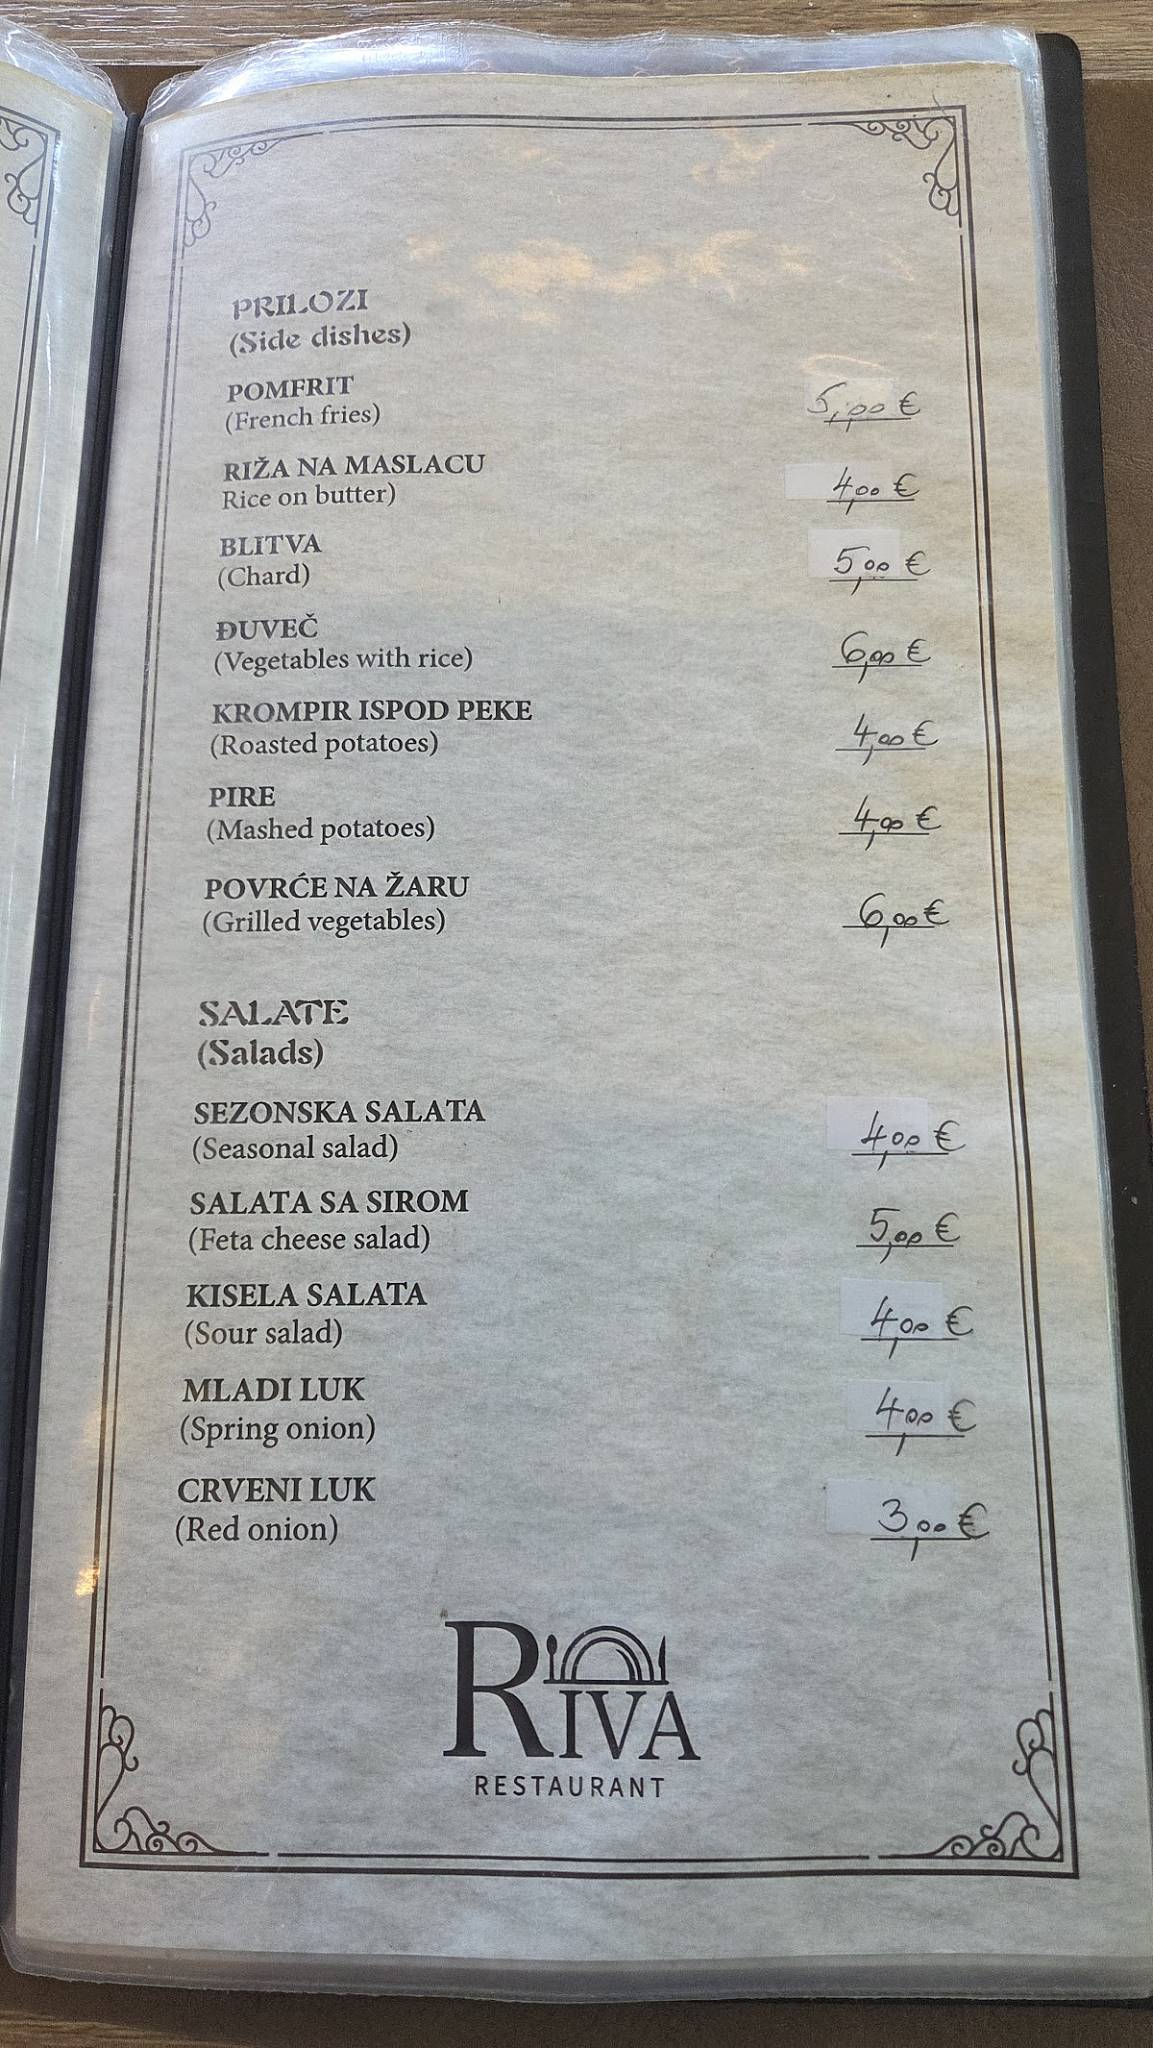 PRILOZI
(Side dishes)
POMFRIT
(French fries) 5,00 €
RIŽA NA MASLACU
Rice on butter) 4,00 €
BLITVA
(Chard) 5,00 €
ĐUVEČ
(Vegetables with rice) 6,00 €
KROMPIR ISPOD PEKE
(Roasted potatoes) 4,00 €
PIRE
(Mashed potatoes) 4,00 €
POVRĆE NA ŽARU
(Grilled vegetables) 6,00 €
SALATE
(Salads)
SEZONSKA SALATA
(Seasonal salad) 4,00 €
SALATA SA SIROM
(Feta cheese salad) 5,00 €
KISELA SALATA
(Sour salad) 4,00 €
MLADI LUK
(Spring onion) 4,00 €
CRVENI LUK
(Red onion) 3,00 €
RIVA
RESTAURANT